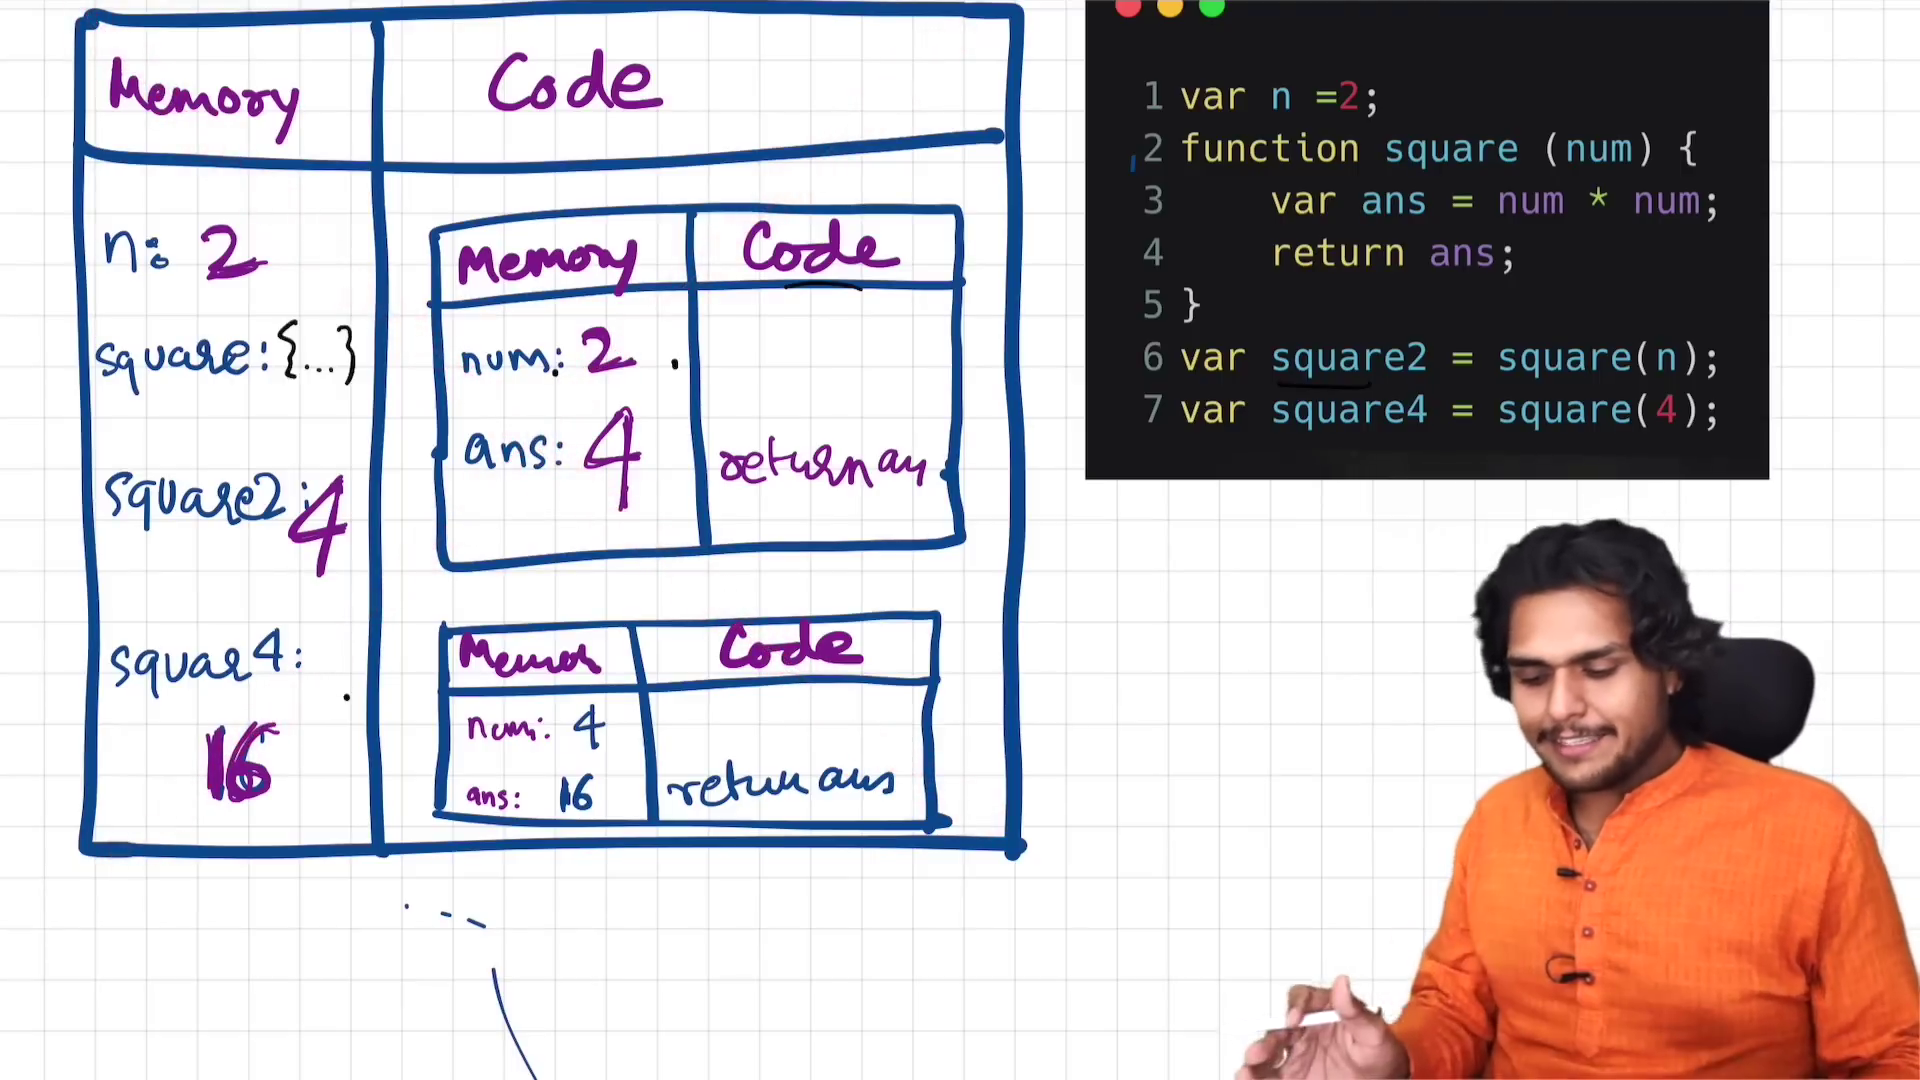 Memory
Code
n: 2
square: {...}
square2: 4
squar4:
16
Memory
Code
num: 2
ans: 4
return an
Code
num: 4
ans: 16
return ans
1 var n =2;
2 function square (num) {
3 var ans = num * num;
4 return ans;
5 }
6 var square2 = square(n);
7 var square4 = square(4);